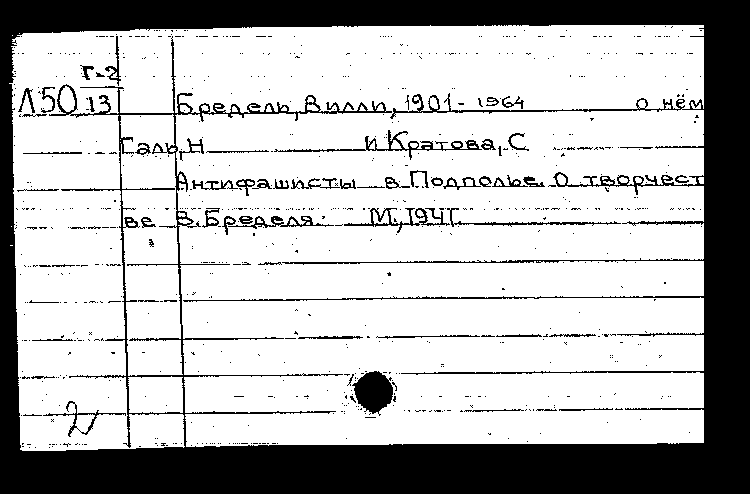 Г-2
Л50 13 Бредель, Вилли, 1901-1964 о нём
Галь, Н и Кратова, С
Антифашисты в Подполье. О творчест
ве В. Бределя. М., 1941.
2